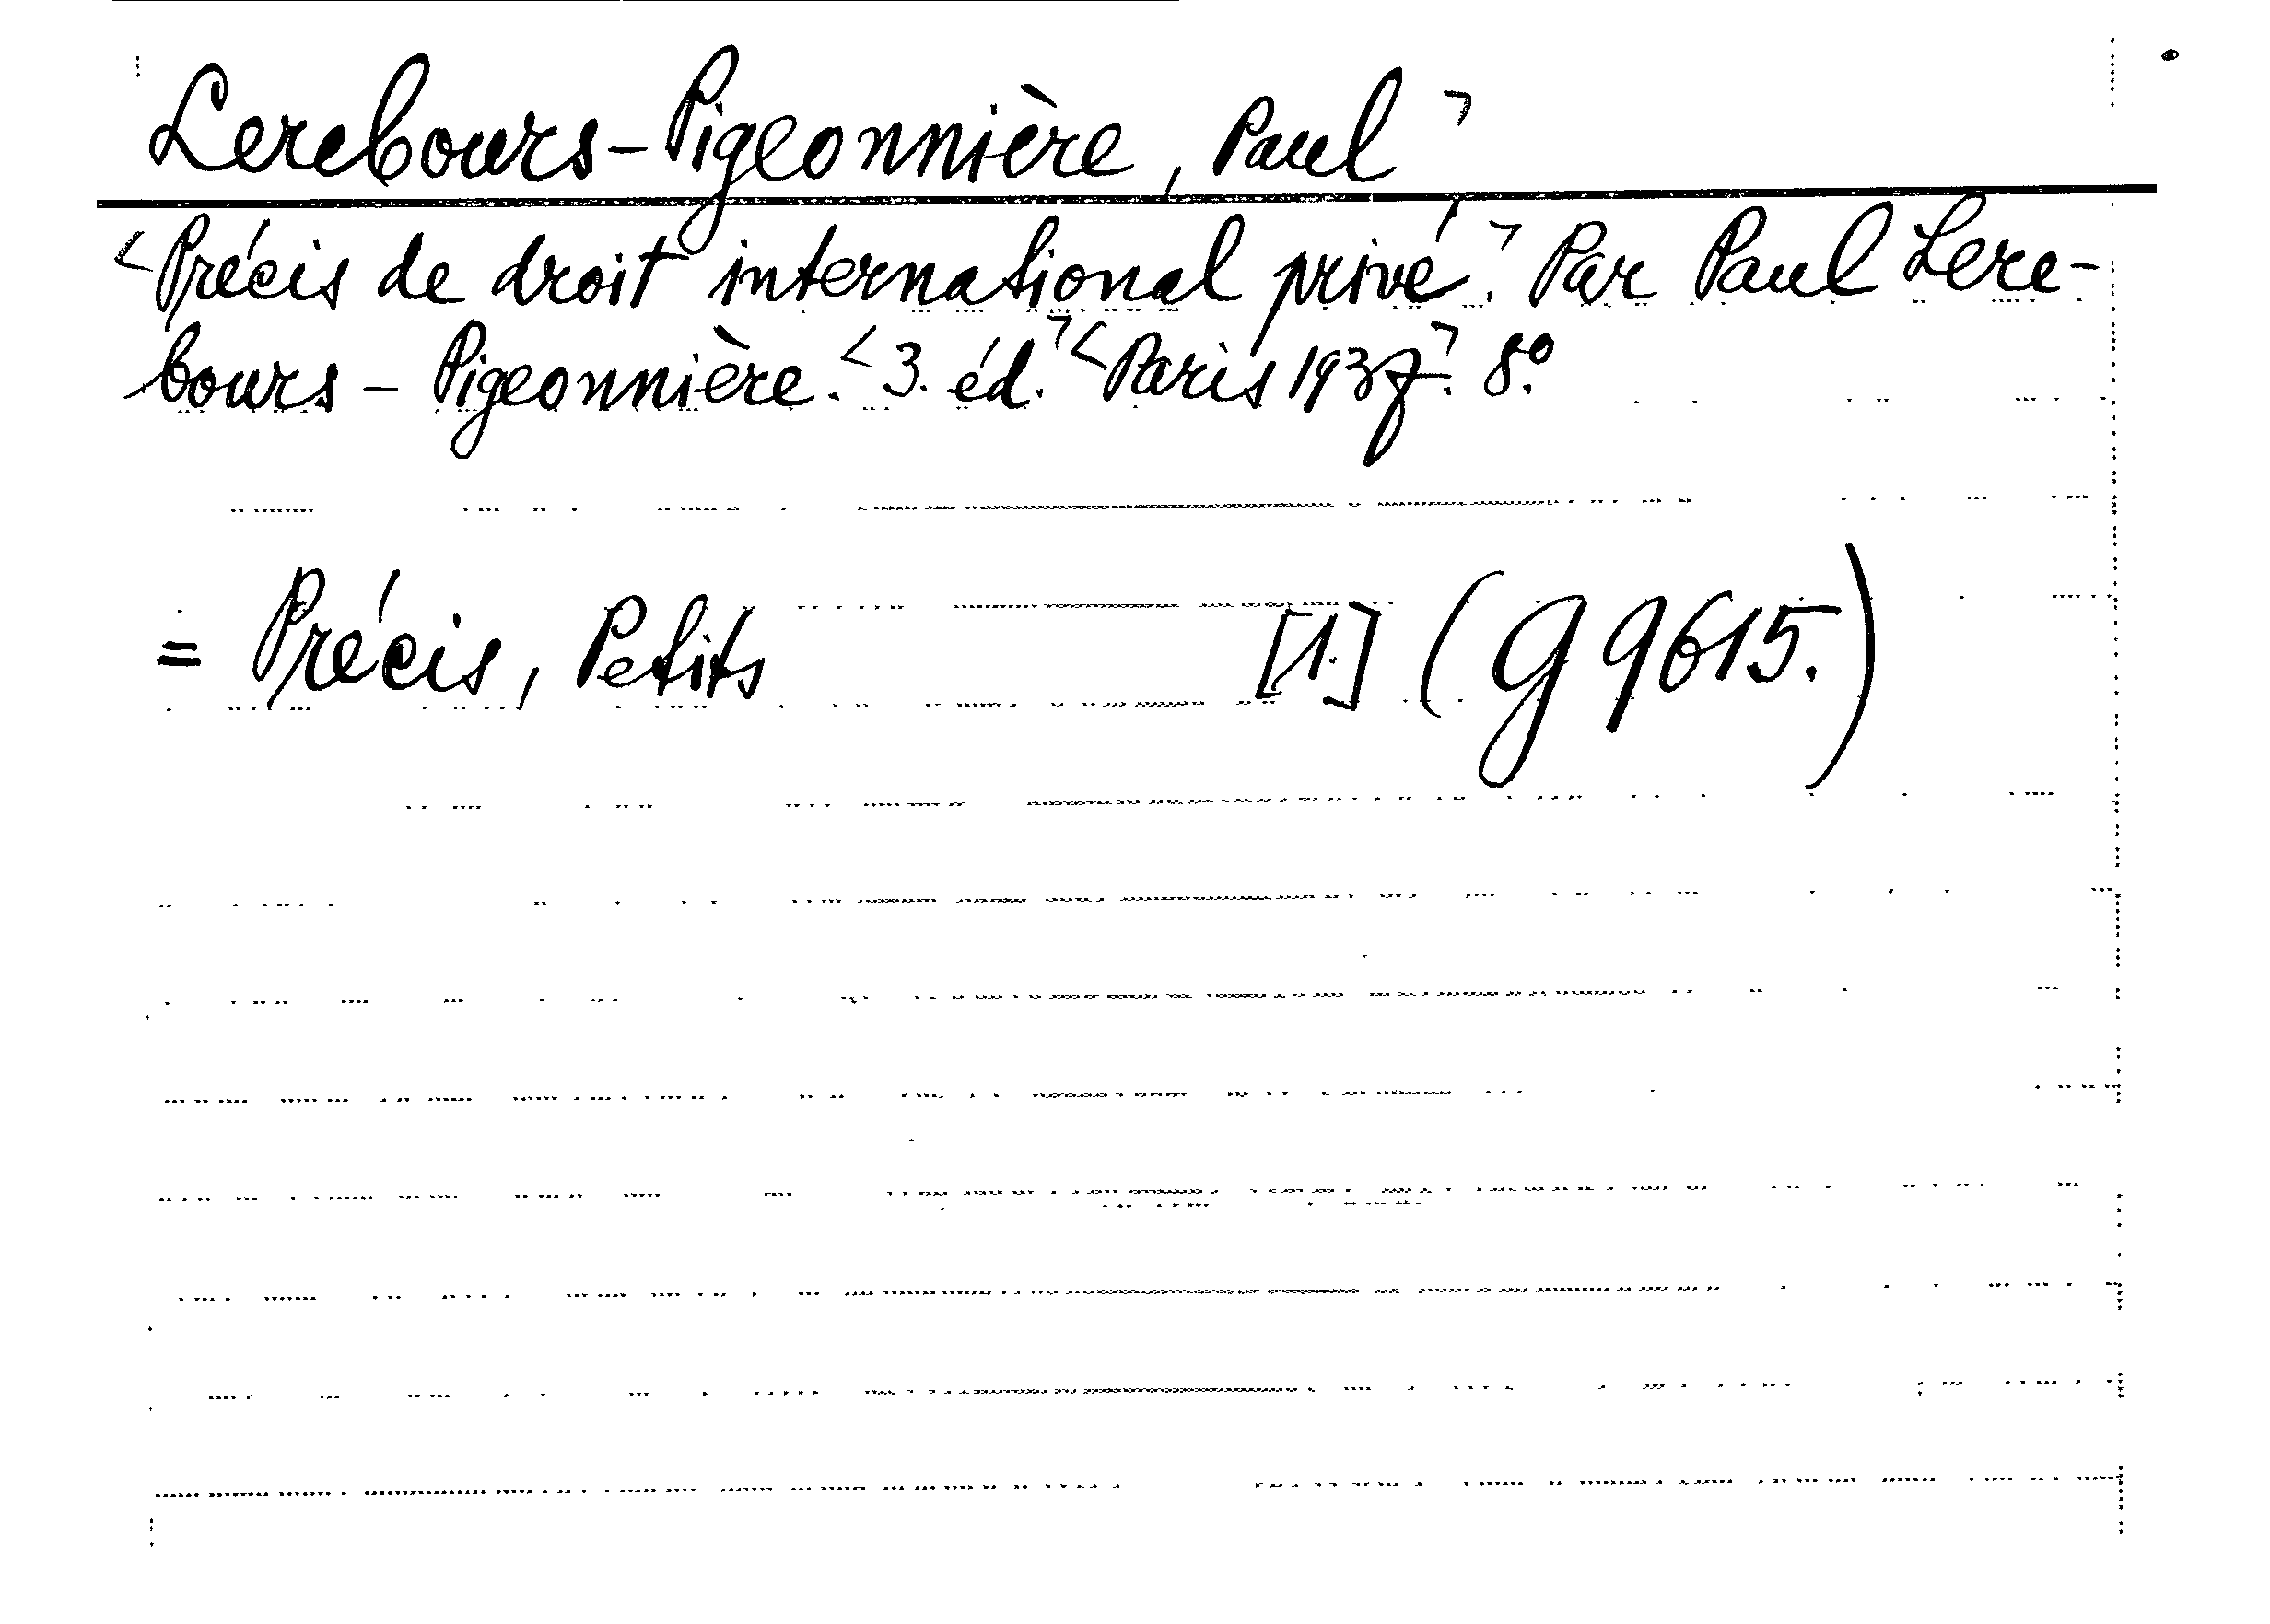 Lerebours-Pigeonnière, Paul ⌝
<Précis de droit international privé⌝. Par Paul Lere-
bours-Pigeonnière. <3. éd.⌝ <Paris 1937⌝. 8°.
= Précis, Petits [1.] (g 9615.)